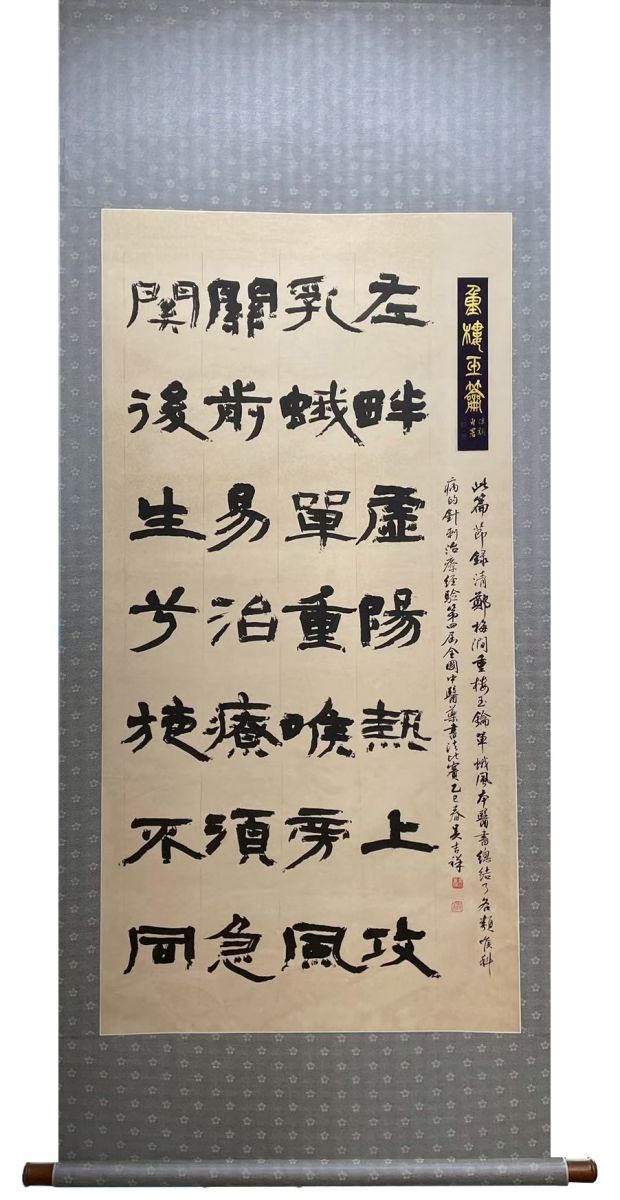 重樓玉籥
此篇節録清鄭梅澗重楼玉鑰單蛾風本醫書總结了各類喉科
病的針刺治療经验第四届全國中醫藥書法比賽乙巳春吴吉祥
左畔虛陽熱上攻
乳蛾單重喉旁風
關前易治療須急
関後生兮施不同